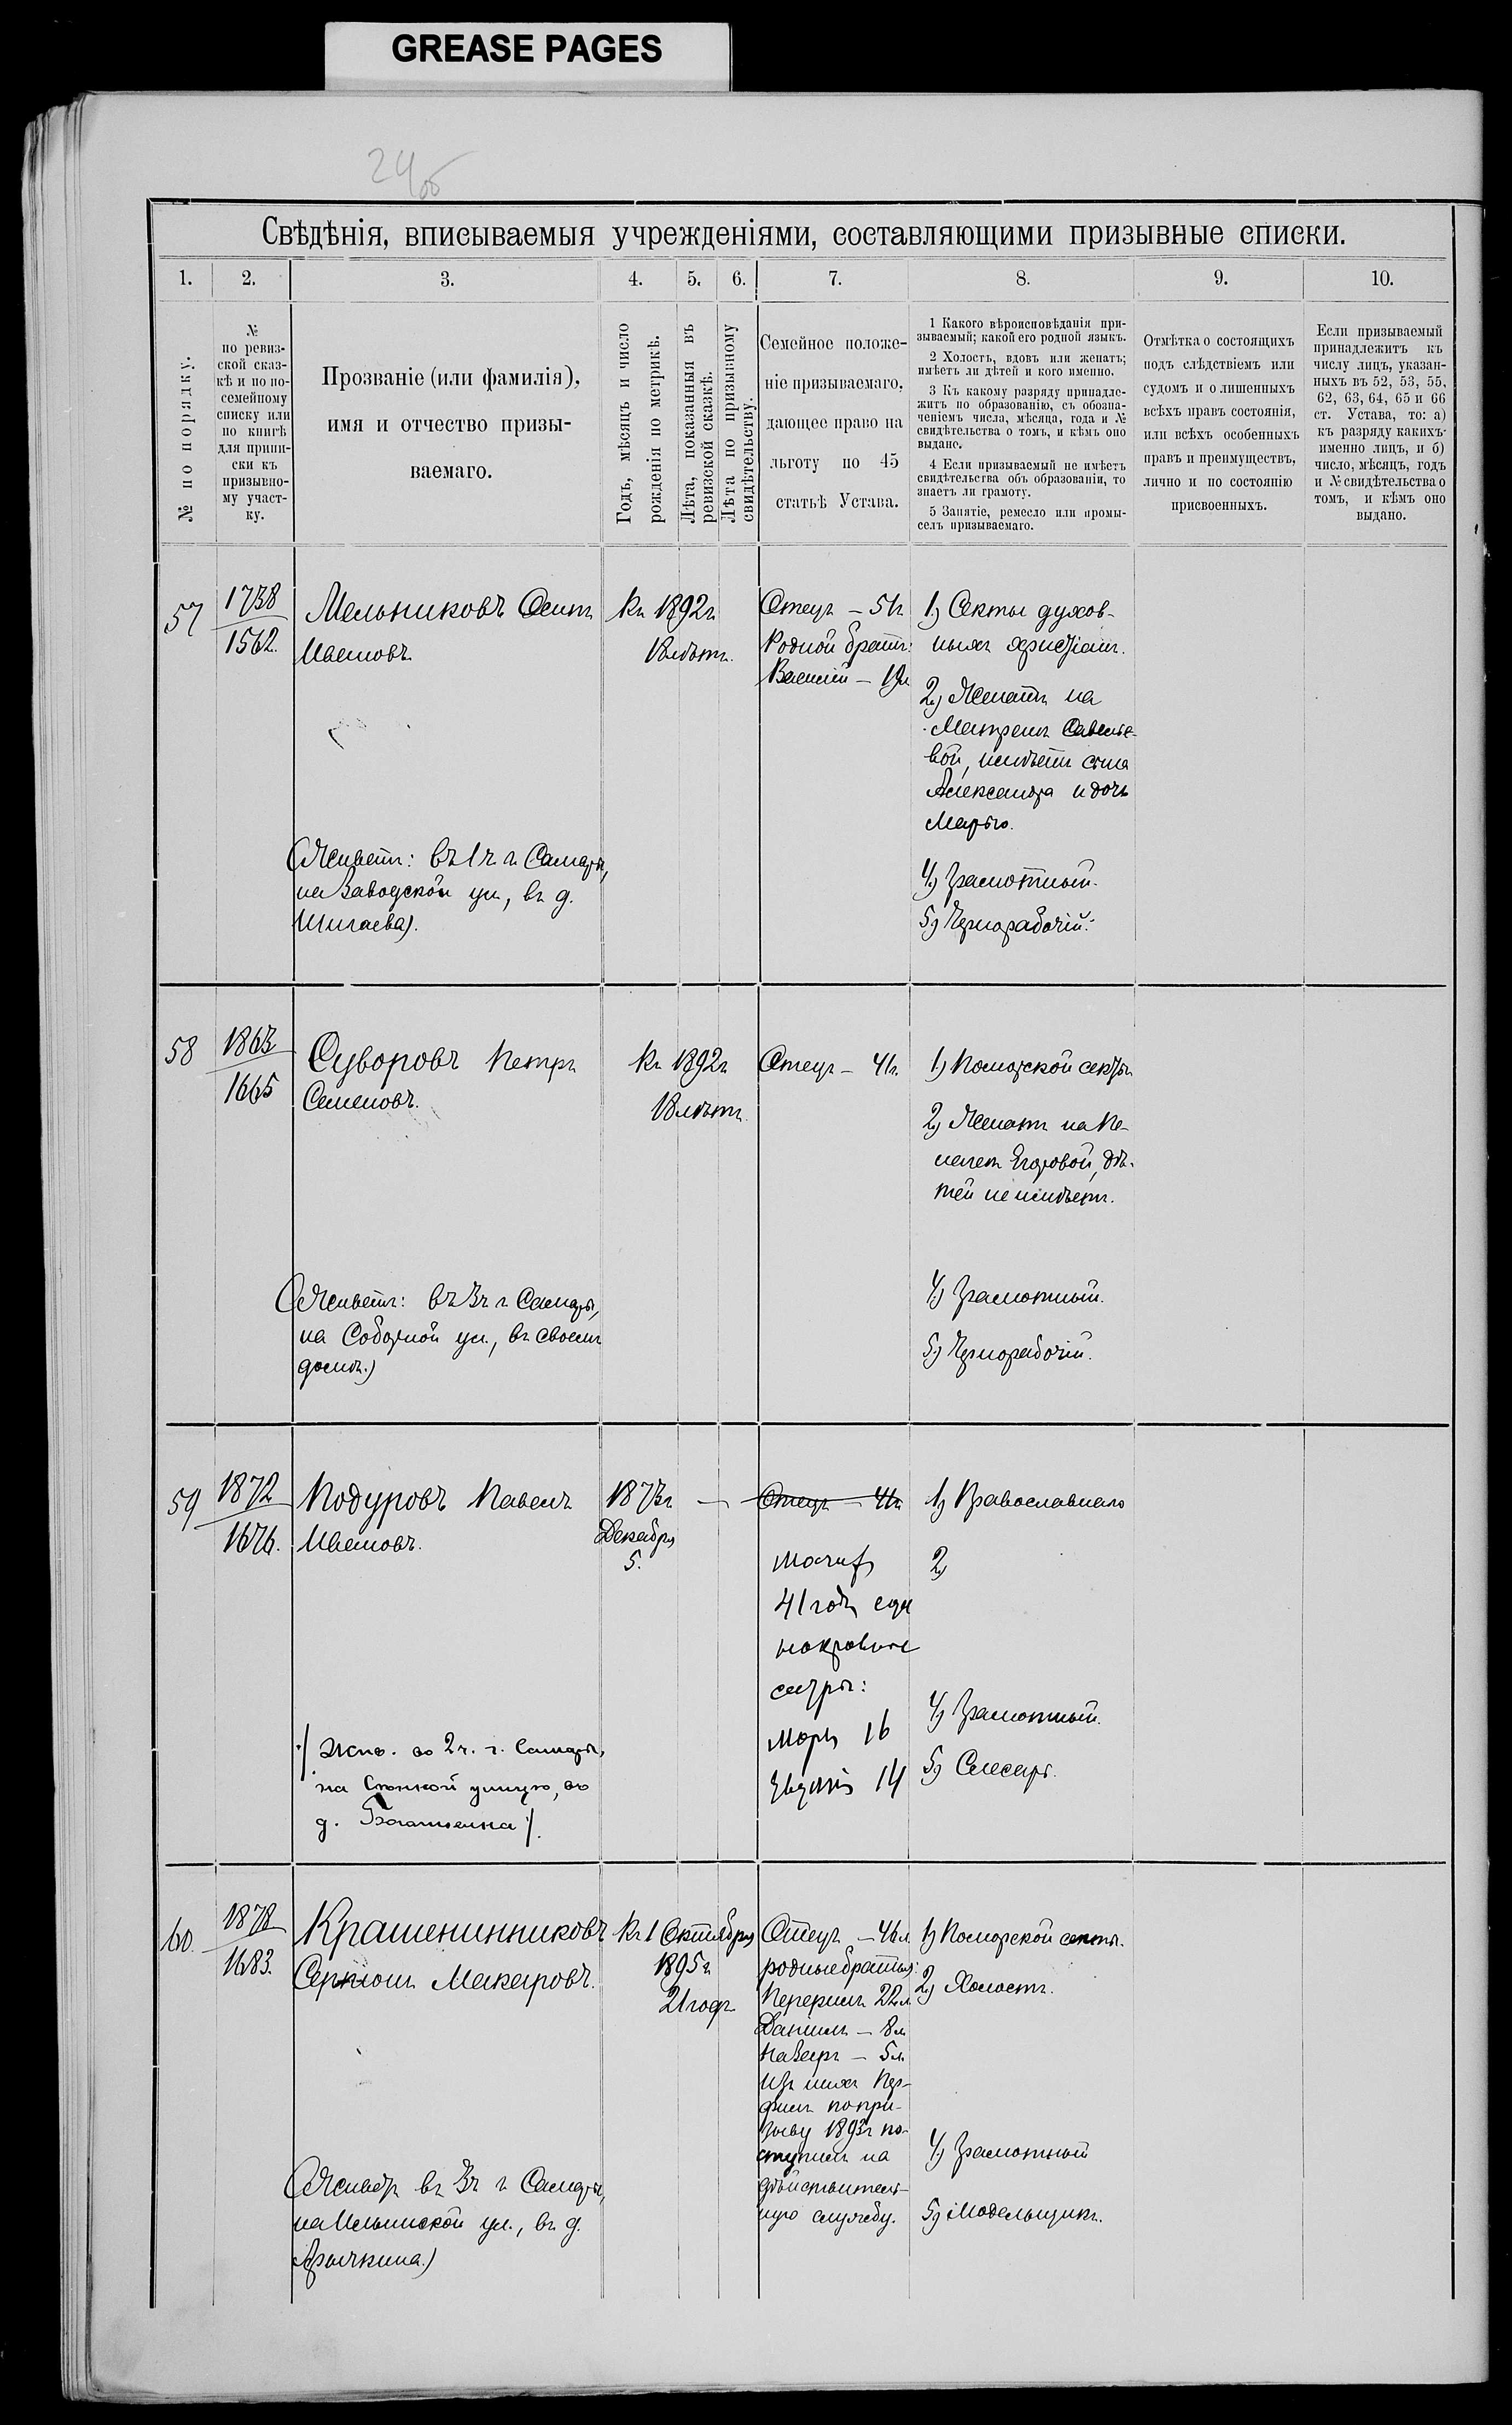 GREASE PAGES
24 об
Свѣдѣнія, вписываемыя учрежденіями, составляющими призывные списки.
1. 2. 3. 4. 5. 6. 7. 8. 9. 10.
№ по порядку.
№
по ревиз-
ской сказ-
кѣ и по по-
семейному
списку или
по книгѣ
для припи-
ски къ
призывно-
му участ-
ку.
Прозваніе (или фамилія),
имя и отчество призы-
ваемаго.
Годъ, мѣсяцъ и число
рожденія по метрикѣ.
Лѣта, показанныя въ
ревизской сказкѣ.
Лѣта по призывному
свидѣтельству.
Семейное положе-
ніе призываемаго,
дающее право на
льготу по 45
статьѣ Устава.
1 Какого вѣроисповѣданія при-
зываемый; какой его родной языкъ.
2 Холостъ, вдовъ или женатъ;
имѣетъ ли дѣтей и кого именно.
3 Къ какому разряду принадле-
житъ по образованію, съ обозна-
ченіемъ числа, мѣсяца, года и №
свидѣтельства о томъ, и кѣмъ оно
выдано.
4 Если призываемый не имѣетъ
свидѣтельства объ образованіи, то
знаетъ ли грамоту.
5 Занятіе, ремесло или промы-
селъ призываемаго.
Отмѣтка о состоящихъ
подъ слѣдствіемъ или
судомъ и о лишенныхъ
всѣхъ правъ состоянія,
или всѣхъ особенныхъ
правъ и преимуществъ,
лично и по состоянію
присвоенныхъ.
Если призываемый
принадлежитъ къ
числу лицъ, указан-
ныхъ въ 52, 53, 55,
62, 63, 64, 65 и 66
ст. Устава, то: а)
къ разряду какихъ-
именно лицъ, и б)
число, мѣсяцъ, годъ
и № свидѣтельства о
томъ, и кѣмъ оно
выдано.
57
1738
1562.
Мельниковъ Осипъ
Ивановъ.
(Живетъ: въ 1 ч. г. Самары,
на Заводской ул., въ д.
Шигаева).
Къ 1892 г
18 лѣтъ.
Отецъ – 51 г
Родной братъ:
Василій – 19 л
1) Секты духов-
ныхъ христіанъ.
2) Женатъ на
Матренѣ Савелье-
вой, имѣетъ сына
Александра и дочь
Марью.
4) Грамотный.
5) Чернорабочій.
58
1863
1665
Суворовъ Петръ
Семеновъ.
(Живетъ: въ 3 ч. г. Самары,
на Соборной ул., въ своемъ
домѣ.)
Къ 1892 г
18 лѣтъ.
Отецъ – 41 г.
1) Поморской секты
2) Женатъ на Пе-
лагеѣ Егоровой, дѣ-
тей не имѣетъ.
4) Грамотный.
5) Чернорабочій.
59
1872
1676.
Подуровъ Павелъ
Ивановъ.
/: Жив. во 2 ч. г. Самары,
на улицѣ, въ
д. :/
1873 г
Декабря
5.
—
Отецъ – 41 г
Мачиха
41 годъ еди
нокровные
сестры:
Марья 16
Евдокія 14
1) Православнаго
2)
4) Грамотный.
5) Слесарь.
60.
1878
1683.
Крашенинниковъ
Макаровъ.
(Живетъ въ 3 ч. г. Самары,
на Ильинской ул., въ д.
Арычкина.)
Къ 1 Октября
1895 г
21 годъ.
Отецъ – 46 л
родные братья:
22 л
Даніилъ – 8 л
Назаръ – 5 л
Изъ нихъ Пер-
филъ по при-
зыву 1893 г по-
ступилъ на
дѣйствитель-
ную службу.
1) Поморской секты.
2) Холостъ.
4) Грамотный
5) Модельщикъ.